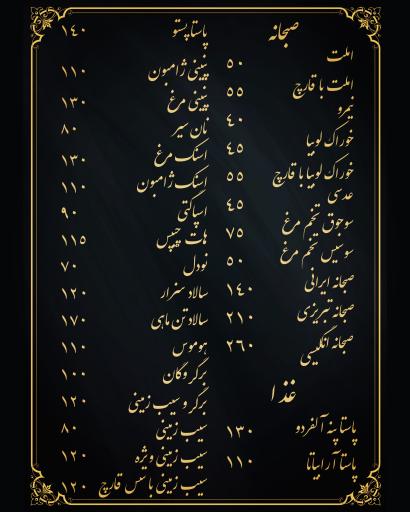 صبحانه
املت ۵۰
املت با قارچ ۵۵
نیمرو ۴۰
خوراک لوبیا ۴۵
خوراک لوبیا با قارچ ۵۵
عدسی ۴۵
سوجوق تخم مرغ ۷۵
سوسیس تخم مرغ ۵۰
صبحانه ایرانی ۱۴۰
صبحانه تبریزی ۲۱۰
صبحانه انگلیسی ۲۶۰
غذا
پاستا پنه آلفردو ۱۳۰
پاستا آرابیاتا ۱۱۰
پاستا پستو ۱۴۰
پنینی ژامبون ۱۱۰
پنینی مرغ ۱۳۰
نان سیر ۸۰
اسنک مرغ ۱۳۰
اسنک ژامبون ۱۱۰
اسپاگتی ۹۰
هات چیپس ۱۱۵
نودل ۷۰
سالاد سزار ۱۲۰
سالاد تن ماهی ۱۷۰
هوموس ۱۱۰
برگر وگان ۱۰۰
برگر و سیب زمینی ۱۲۰
سیب زمینی ۸۰
سیب زمینی ویژه ۱۲۰
سیب زمینی با سس قارچ ۱۲۰